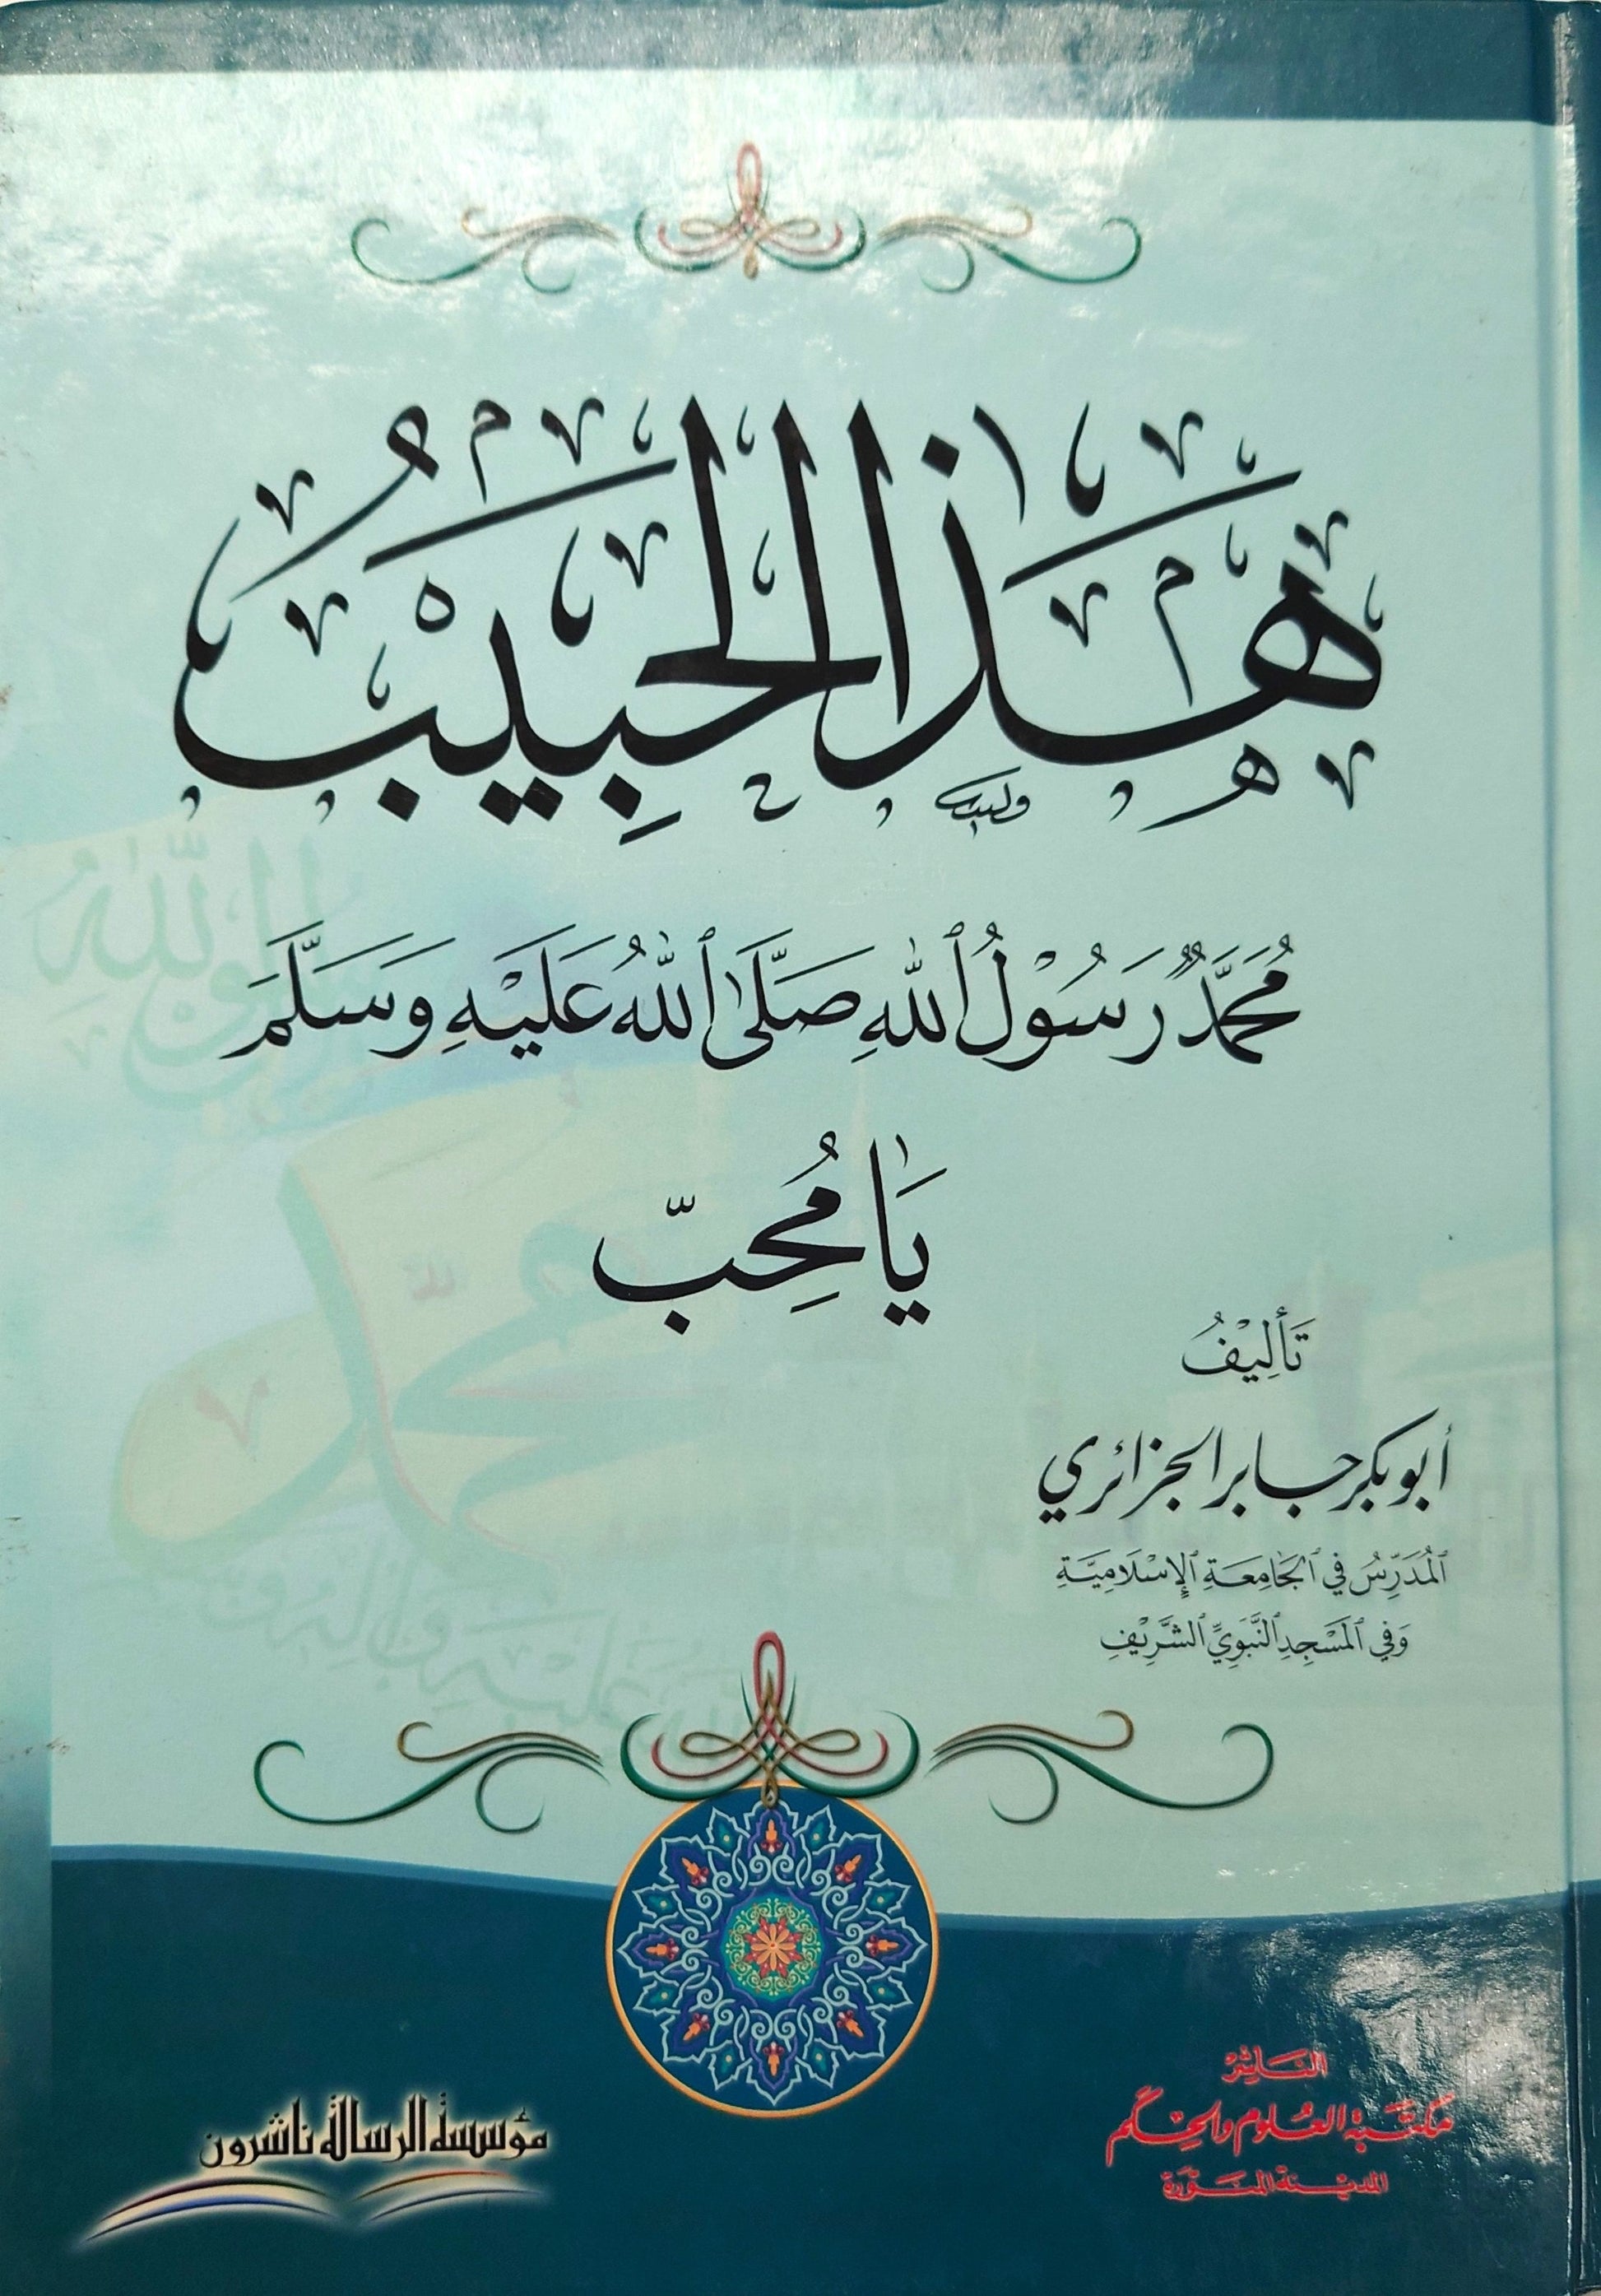 هَذَا الحَبِيْبُ
مُحَمَّدٌ رَسُوْلُ ٱللهِ صَلَّى ٱللهُ عَلَيْهِ وَسَلَّمَ
يَا مُحِبّ
تَأْلِيْفُ
أبو بكر جابر الجزائري
ٱلْمُدَرِّسُ في ٱلجَامِعَةِ ٱلإِسْلَامِيَّةِ
وَفي ٱلمَسْجِدِ ٱلنَّبَوِيِّ ٱلشَّرِيْفِ
الناشر
مكتبة العلوم والحكم
المدينة المنورة
مؤسسة الرسالة ناشرون